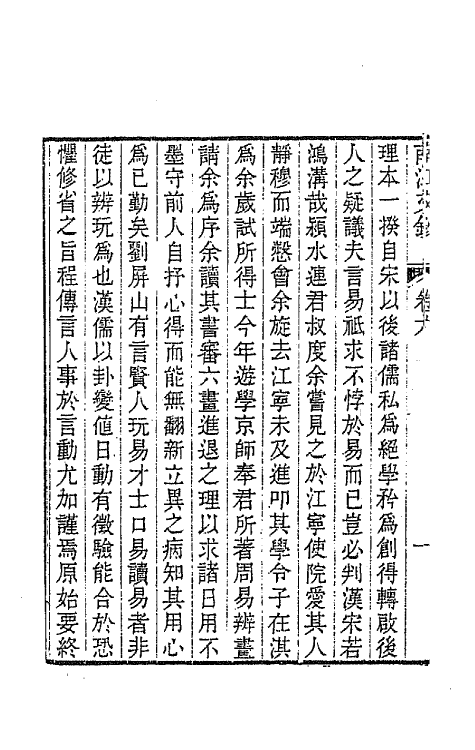 卷六
一
理本一揆自宋以後諸儒私爲絕學矜爲創得轉啟後
人之疑議夫言易祇求不悖於易而已豈必判漢宋若
鴻溝哉潁水連君叔度余嘗見之於江寧使院愛其人
靜穆而端慤會余旋去江寧未及進叩其學令子在淇
爲余歲試所得士今年遊學京師奉君所著周易辨畫
請余爲序余讀其書審六畫進退之理以求諸日用不
墨守前人自抒心得而能無翻新立異之病知其用心
爲已勤矣劉屏山有言賢人玩易才士口易讀易者非
徒以辨玩爲也漢儒以卦變値日動有徵驗能合於恐
懼修省之旨程傳言人事於言動尤加謹焉原始要終